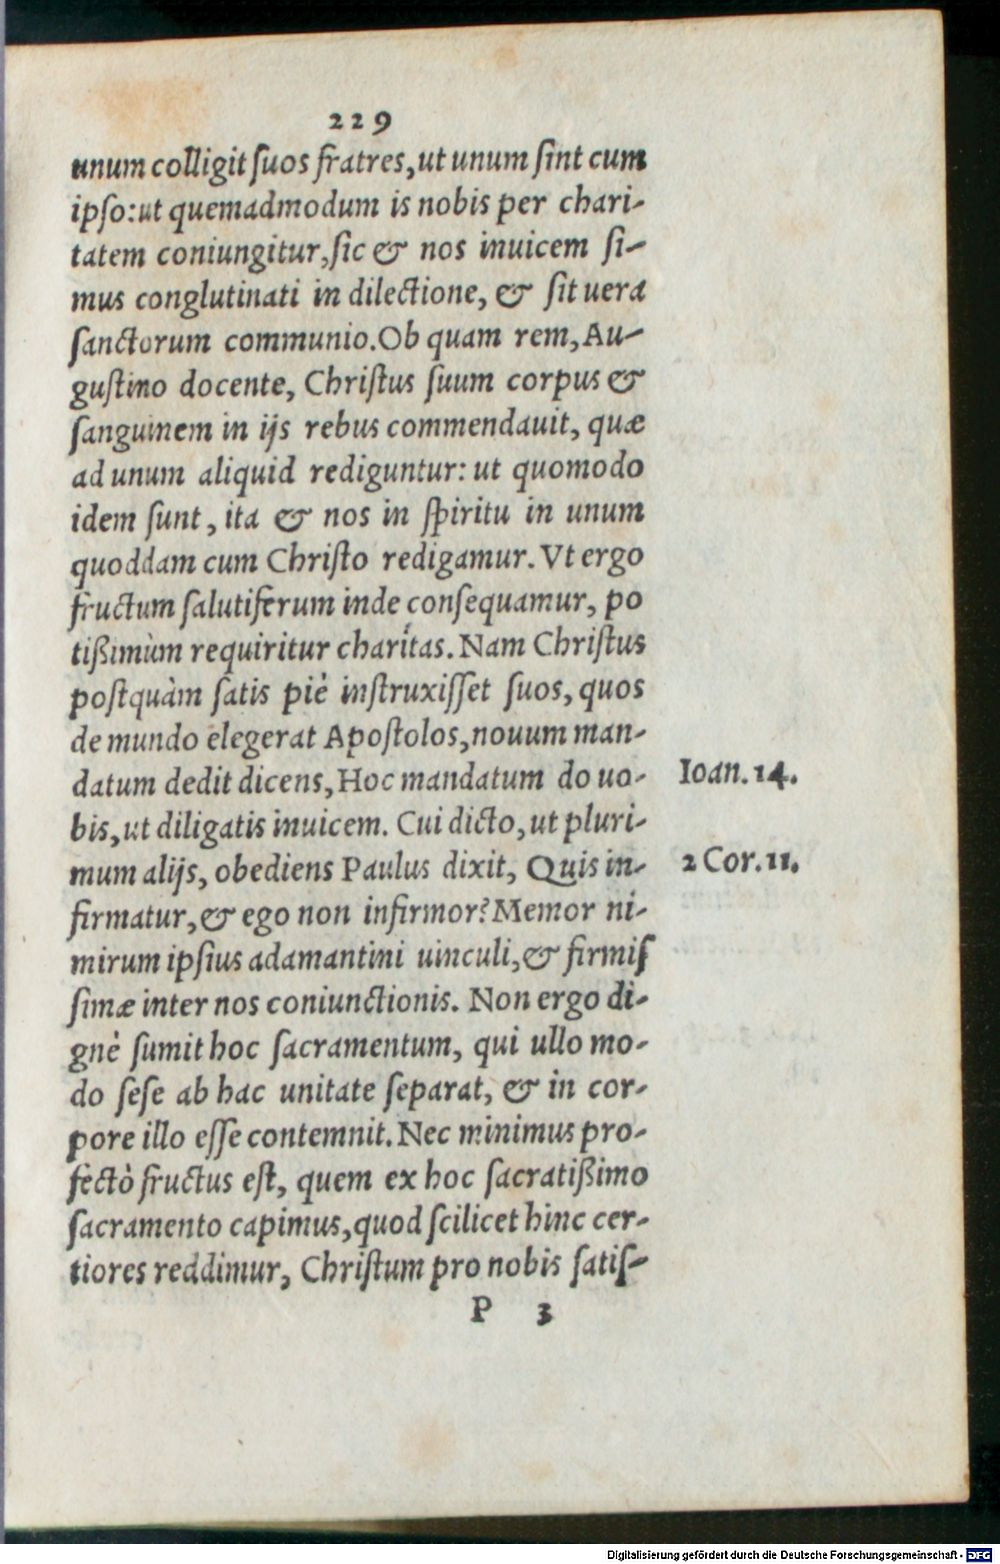 229
unum colligit ſuos fratres, ut unum ſint cum
ipſo: ut quemadmodum is nobis per chari-
tatem coniungitur, ſic & nos inuicem ſi-
mus conglutinati in dilectione, & ſit uera
ſanctorum communio. Ob quam rem, Au-
guſtino docente, Chriſtus ſuum corpus &
ſanguinem in ijs rebus commendauit, quæ
ad unum aliquid rediguntur: ut quomodo
idem ſunt, ita & nos in ſpiritu in unum
quoddam cum Chriſto redigamur. Vt ergo
fructum ſalutiferum inde conſequamur, po
tißimùm requiritur charitas. Nam Chriſtus
poſtquàm ſatis piè inſtruxiſſet ſuos, quos
de mundo elegerat Apoſtolos, nouum man-
datum dedit dicens, Hoc mandatum do uo- Ioan. 14.
bis, ut diligatis inuicem. Cui dicto, ut pluri-
mum alijs, obediens Paulus dixit, Quis in- 2 Cor. 11.
firmatur, & ego non infirmor? Memor ni-
mirum ipſius adamantini uinculi, & firmiſ
ſimæ inter nos coniunctionis. Non ergo di-
gnè ſumit hoc ſacramentum, qui ullo mo-
do ſeſe ab hac unitate ſeparat, & in cor-
pore illo eſſe contemnit. Nec minimus pro-
fectò fructus eſt, quem ex hoc ſacratißimo
ſacramento capimus, quod ſcilicet hinc cer-
tiores reddimur, Chriſtum pro nobis ſatiſ-
P 3
Digitalisierung gefördert durch die Deutsche Forschungsgemeinschaft - DFG